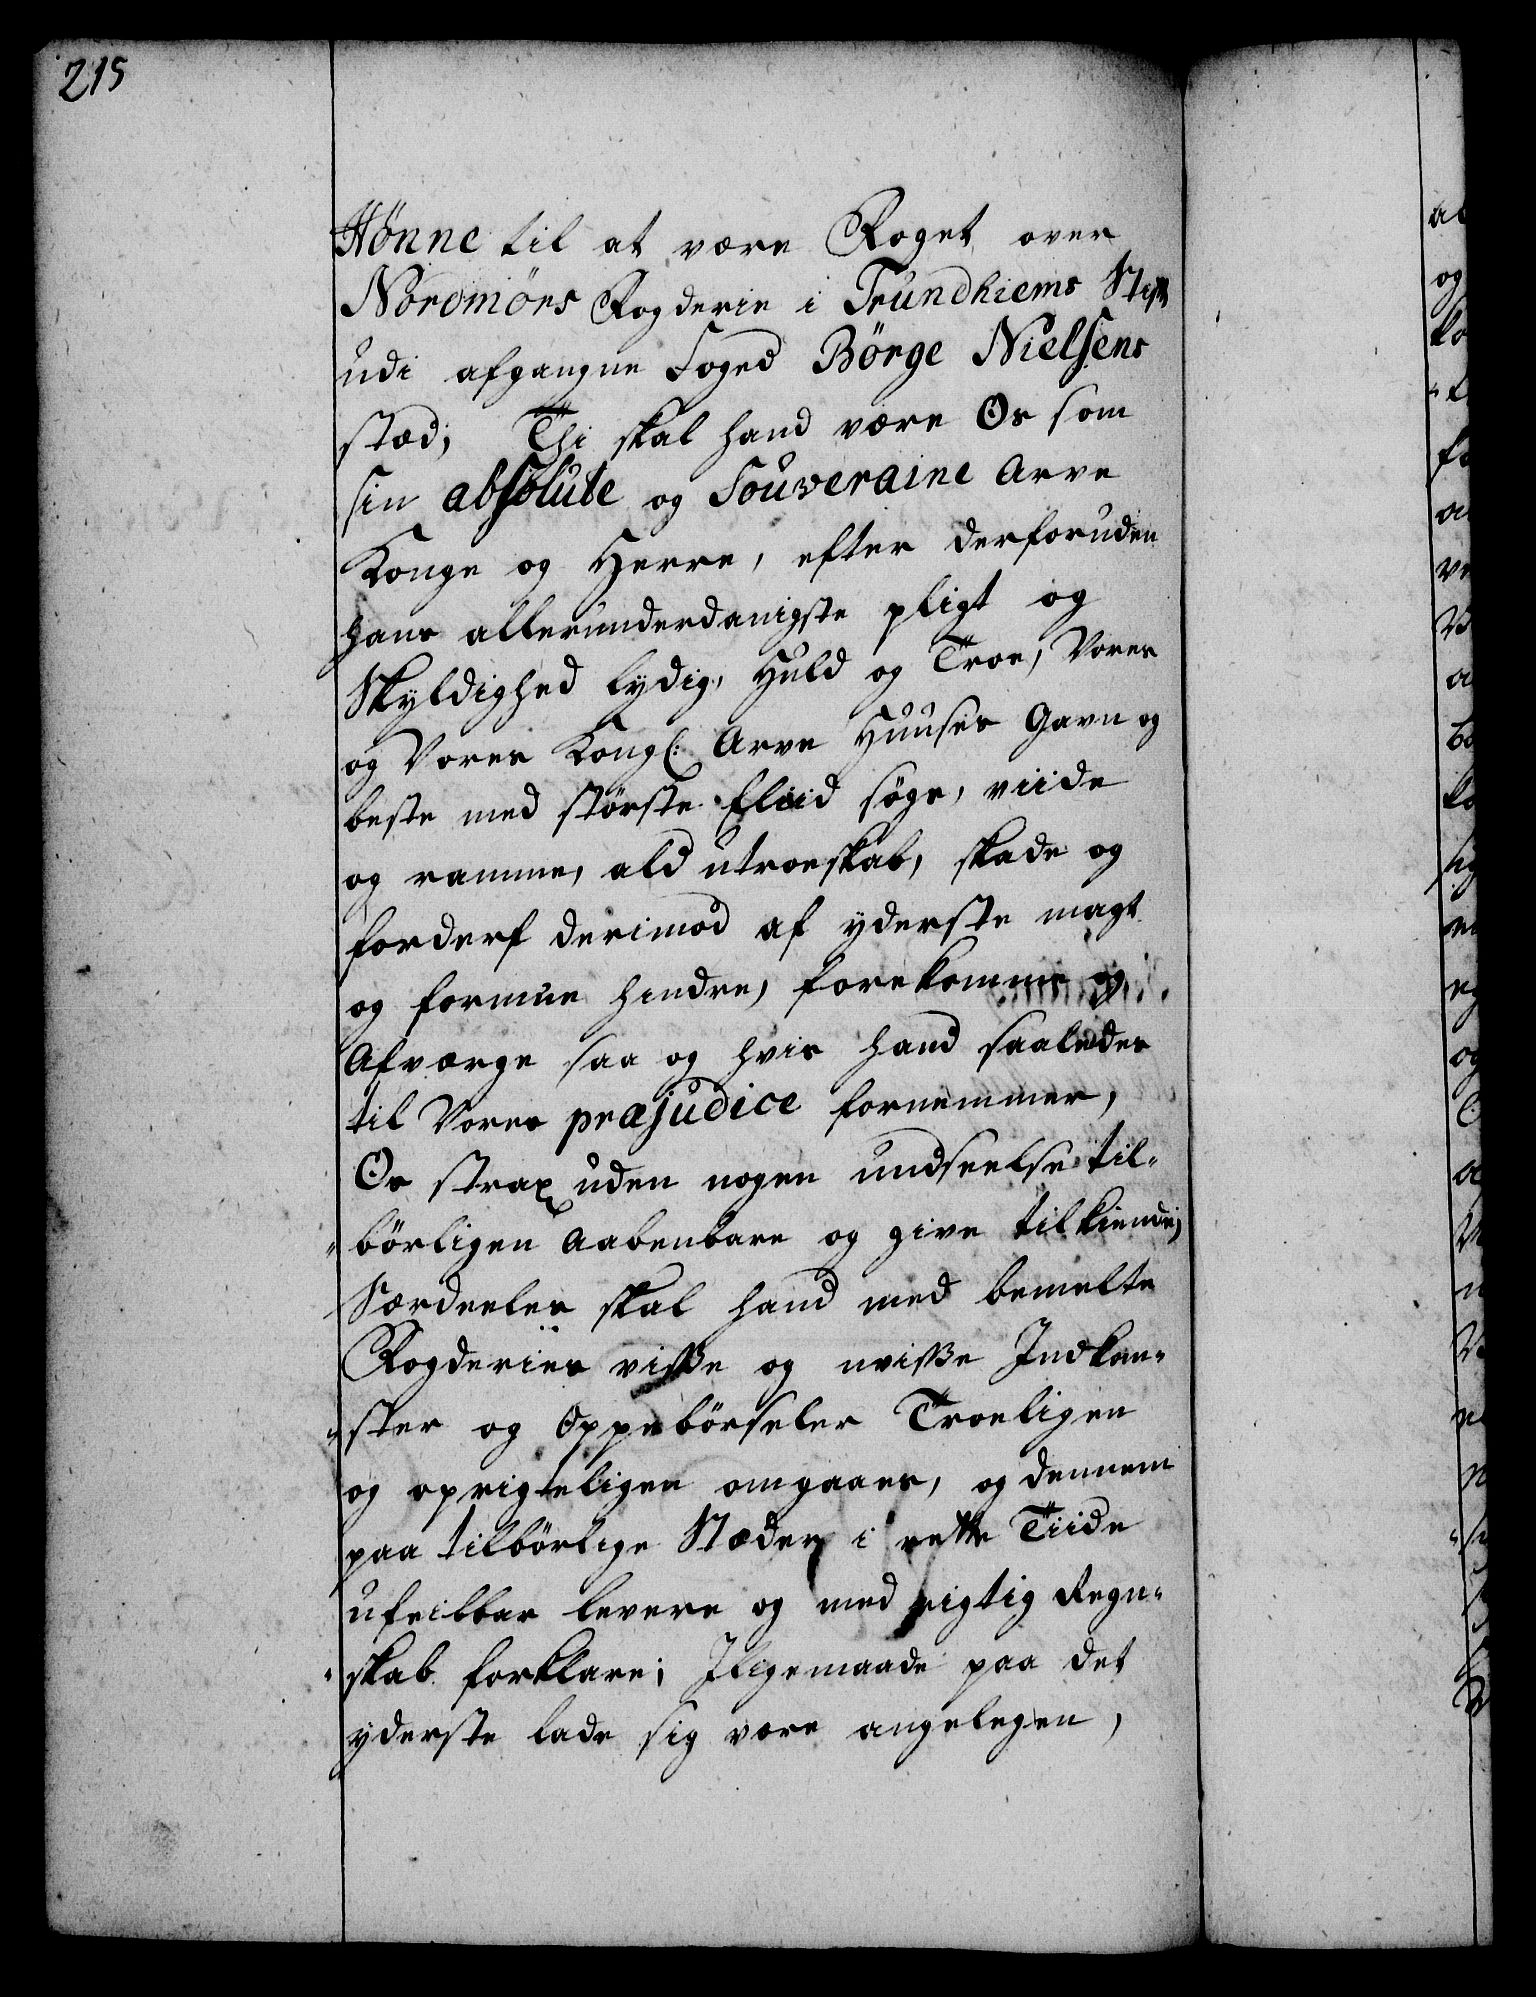 215
Hönne til at være Foget over
Nordmörs Fogderie i Trundhiems Stift
udi afgangne Foged Börge Nielsens
stæd; Thi skal hand være Os som
sin absolute og Souveraine Arve
Konge og Herre, efter derforuden
hans allerunderdanigste pligt og
Skyldighed lydig, Huld og Troe, Vores
og Vores Kongl: Arve Huuses Gavn og
beste med störste Fliid söge, viide
og ramme, ald utroeskab, skade og
forderf derimod af yderste magt
og formue hindre, forekomme og
Afværge saa og hvis hand saaledes
til Vores præjudice fornemmer,
Os strax uden nogen undseelse til-
börligen Aabenbare og give tilkiende,
Særdeeles skal hand med bemelte
Fogderies visse og uvisse Indkom-
ster og Oppebörseler Troeligen
og oprigteligen omgaaes, og dennem
paa tilbörlige Stæder i rette Tiide
ufeilbar levere og med rigtig Regn-
skab forklare; Iligemaade paa det
yderste lade sig være angelegen,